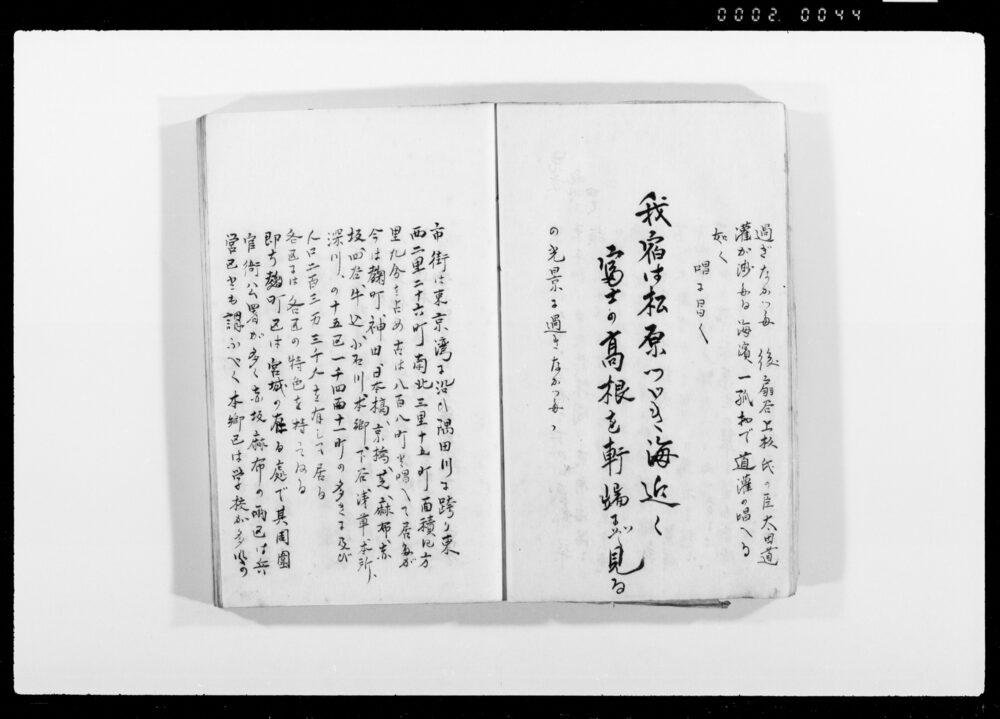 0002. 0044
過ぎなかつた 後 扇谷上杉氏の臣太田道
灌が 海濱一孤村で道灌の唱へる
如く
唱に曰く
我宿は松原つゞき海近く
富士の高根を軒端にぞ見る
の光景に過ぎなかつた、
市街は東京湾に沿ひ隅田川に跨り東
西二里二十六町南北三里十五町面積四方
里九分を占め古は八百八町と唱へて居たが
今は麹町、神田、日本橋、京橋、芝、麻布、赤
坂、四谷、牛込、小石川、本郷、下谷、浅草、本所、
深川、の十五区一千四百十一町の多きに及び
人口二百三万三千九を有して居る
各区には各区の特色を持てゐる
即ち麹町区は宮城の在る處で其周囲
官衙公署が多く赤坂麻布の両区は兵
営区とも謂ふべく本郷区は学校が多いの